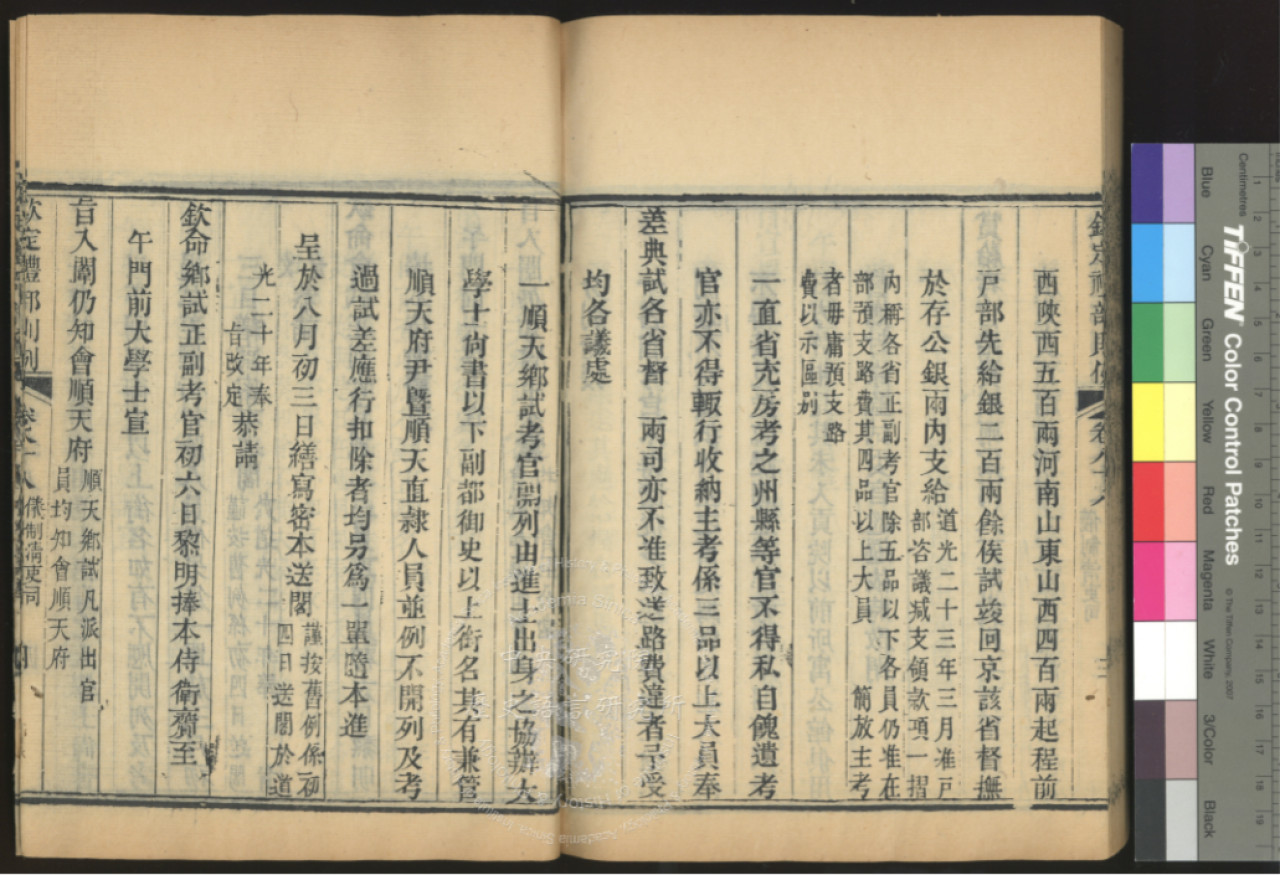 欽定禮部則例 卷八十八
西陝西五百兩河南山東山西四百兩起程前
戸部先給銀二百兩餘俟試竣回京該省督撫
於存公銀兩內支給道光二十三年三月准戸
部咨議減支領款項一摺
內稱各省正副考官除五品以下各員仍准在
部預支路費其四品以上大員 簡放主考
者毋庸預支路
費以示區別
一直省充房考之州縣等官不得私自餽遺考
官亦不得輙行收納主考係三品以上大員奉
差典試各省督 兩司亦不准致送路費違者予受
均各議處
一順天鄉試考官開列由進士出身之協辦大
學士尚書以下副都御史以上銜名其有兼管
順天府尹曁順天直隸人員並例不開列及考
過試差應行扣除者均另爲一單隨本進
呈於八月初三日繕寫密本送閣謹按舊例係初
四日送閣於道
光二十年奉
旨改定恭請
欽命鄉試正副考官初六日黎明捧本侍衛齎至
午門前大學士宣
旨入闈仍知會順天府順天鄉試凡派出官
員均知會順天府
欽定禮部則例 卷八十八 儀制淸吏司
Centimetres
TIFFEN Color Control Patches
© The Tiffen Company, 2007
Blue
Cyan
Green
Yellow
Red
Magenta
White
3/Color
Black